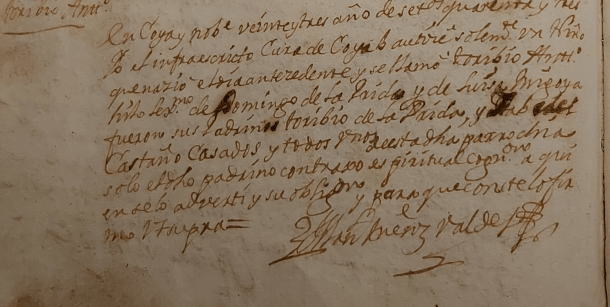 toribio Antt.º
En Coya y nobe veinte y tres año de setos quarenta y tres
Yo el infraescripto Cura de Coya bautize solemte un Niño
que nazio el dia antezedente y se llamo toribio Antt.º
hijo lex.mo de Domingo de la Prida y de Luisa Migoya
fueron sus Padrinos toribio de la Prida, y Isabel
Castaño Casados y todos vnos de esta dha parrochia
solo el dho padrino contraxo espiritual cogn.on a quien
en se lo adverti y su oblig.on y para que conste lo fir
mo Ut supra=
Juan Suerez Valdes